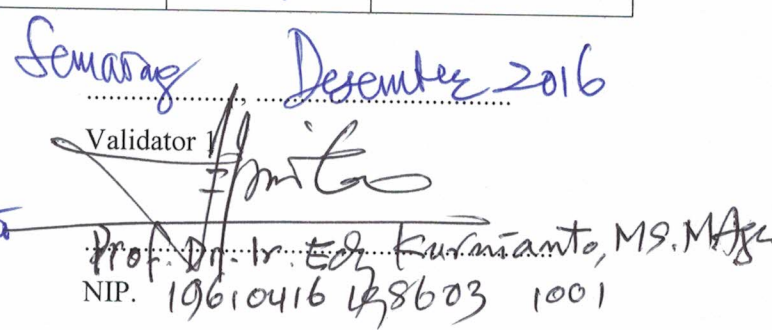 Semarang, Desember 2016
Validator 1
Prof. Dr. Ir. Edy Kurnianto, MS. M.Agr
NIP. 19610416 198603 1001